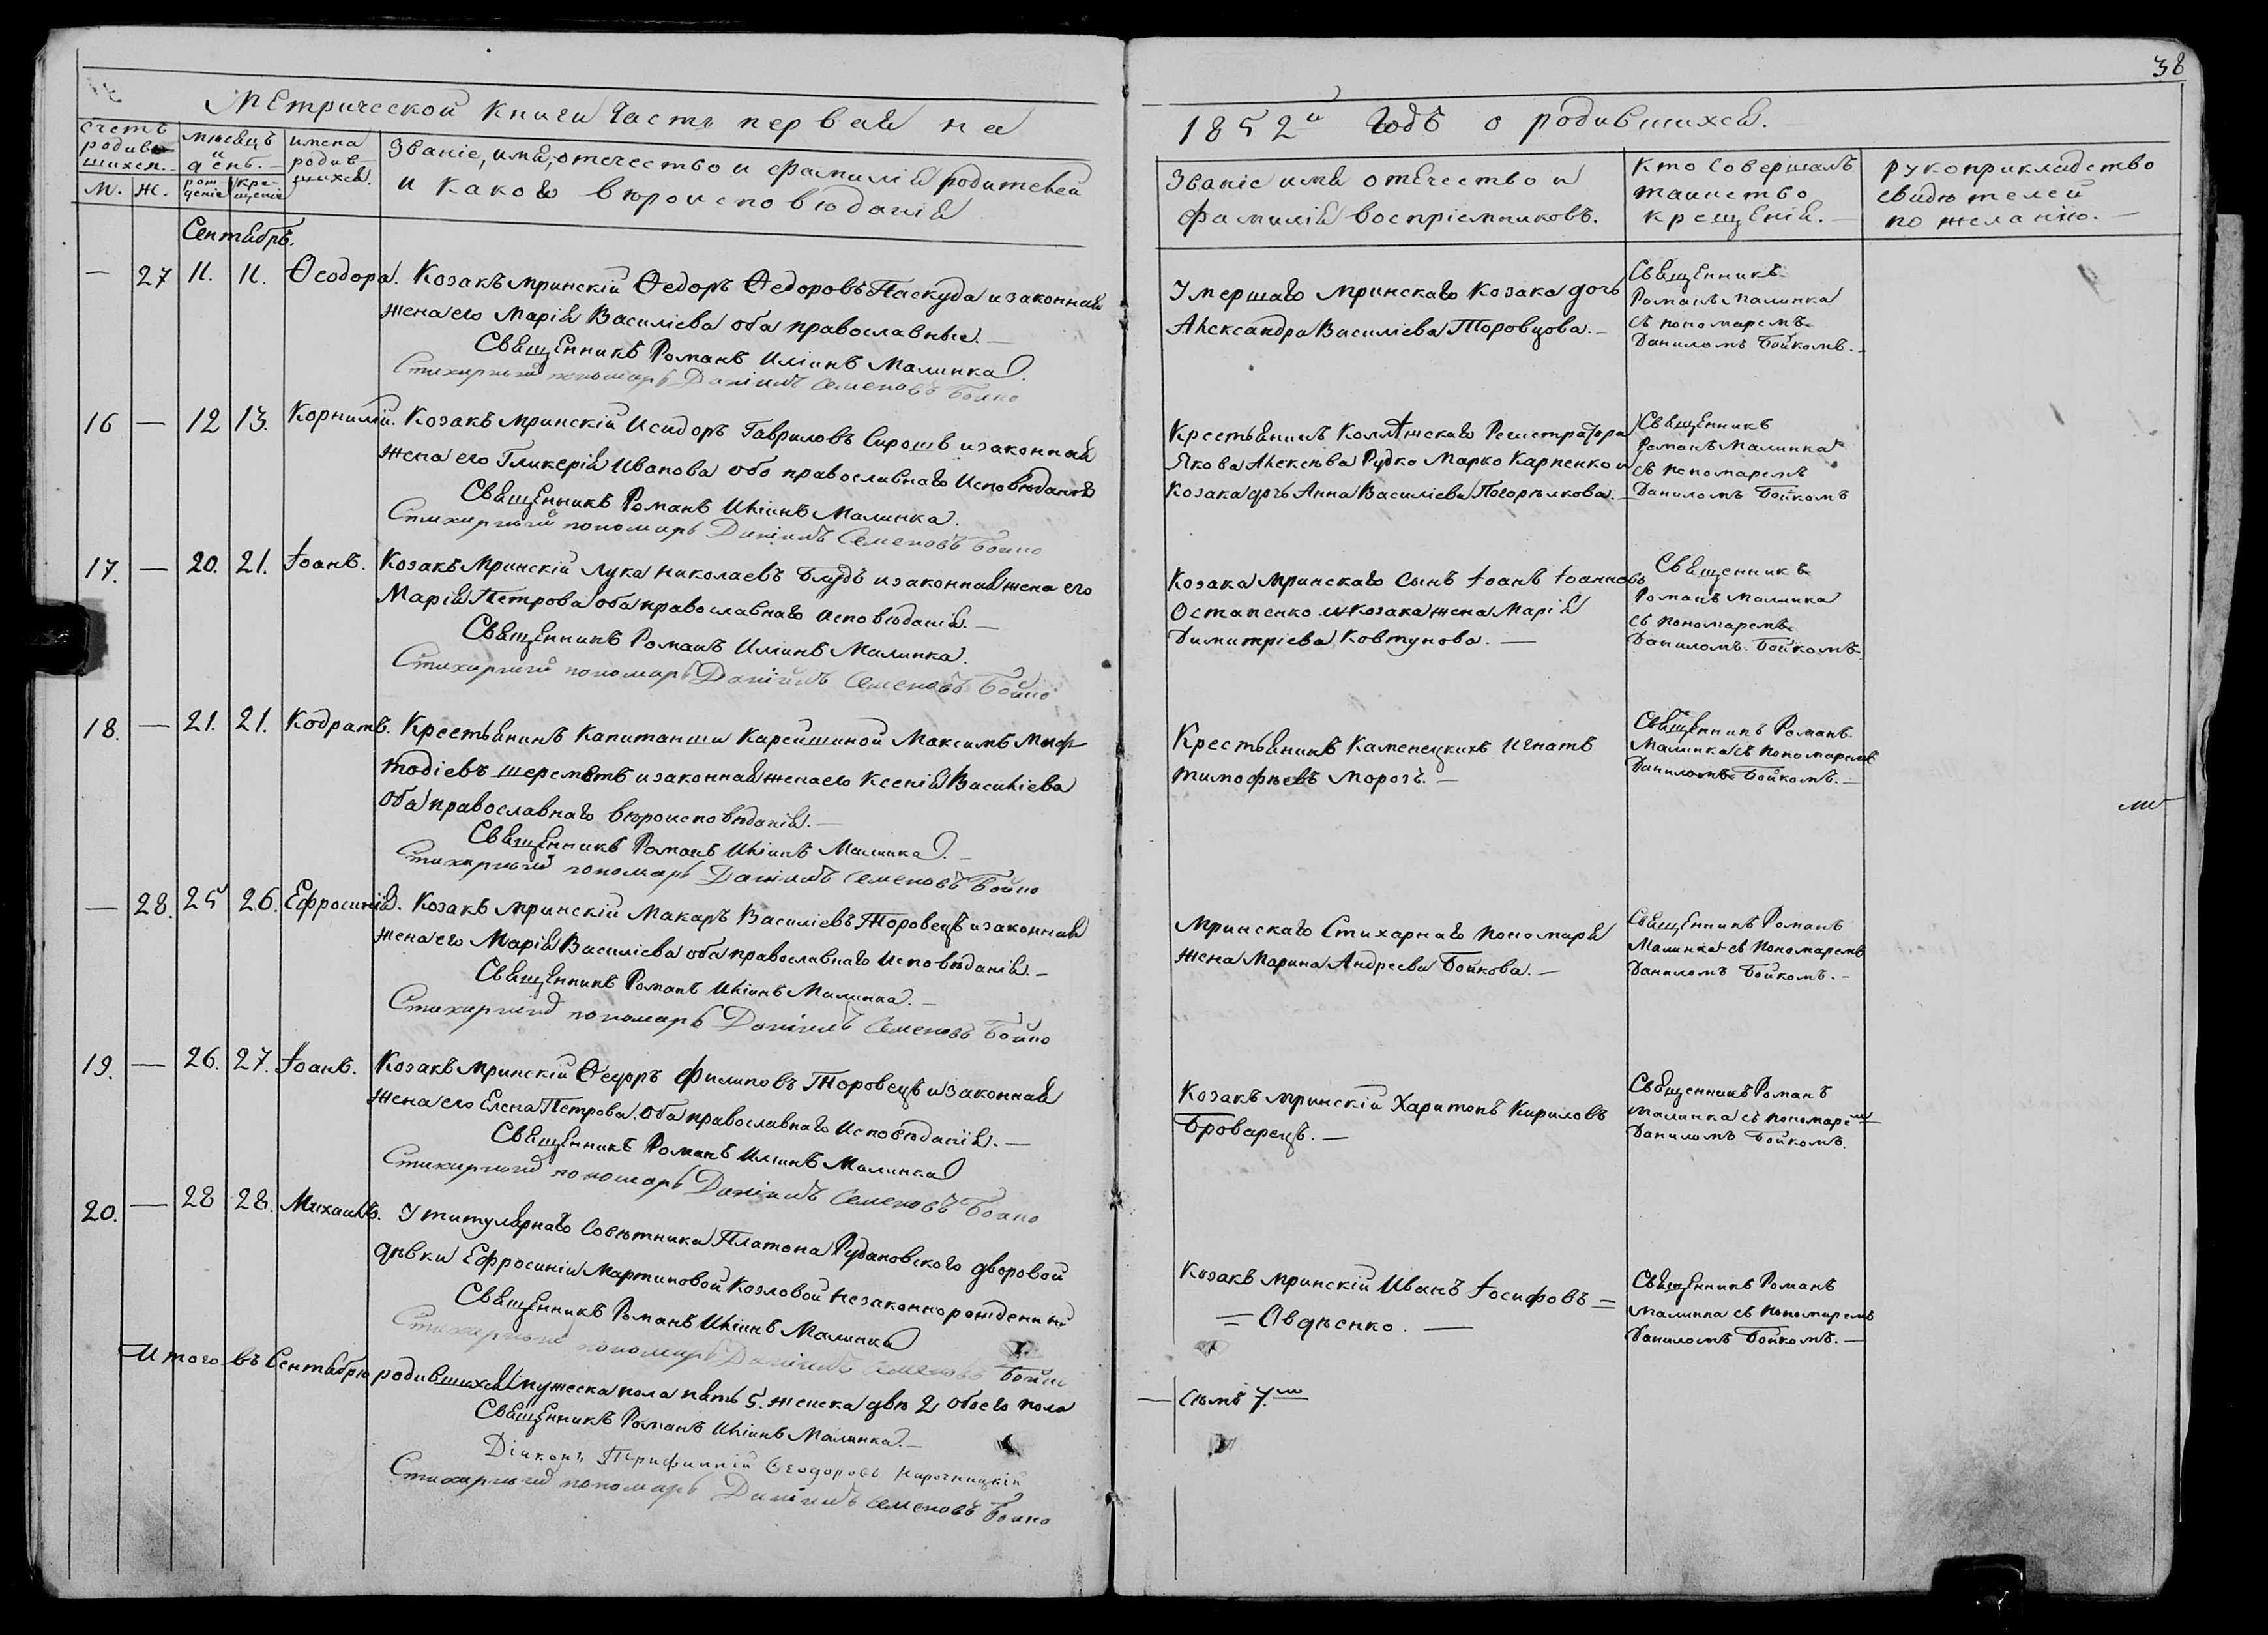 38
Метрической книги часть первая на
1852й Годъ о родившихся.
Счетъ родившихся.
М. Ж.
мѣсяцъ и день.
рожденіе Крещеніе
имена родившихся.
Званіе, имя, отечество и фамилія родителей
и какого вѣроисповѣданія
Званіе имя отечество и
фамилія воспріемниковъ.
Кто совершалъ
таинство
крещенія.
рукоприкладство
свидѣтелей
по желанію.
Сентябрь.
— 27 11. 11. Ѳеодора. Козакъ мринскій Ѳедоръ Ѳедоровъ Паскуда и законная
жена его Марія Василіева оба православные.
Священникъ Романъ Иліинъ Малинка.
Стихарный пономарь Даніилъ Семеновъ Бойко
Умершаго мринскаго Козака дочь
Александра Василіева Торовцова.
Священникъ
Романъ Малинка
съ пономаремъ
Даниломъ Бойкомъ.
16 — 12 13. Корнилій. Козакъ мринскій Исидоръ Гавриловъ Сирошъ и законная
жена его Гликерія Иванова оба православнаго исповѣданія
Священникъ Романъ Иліинъ Малинка.
Стихарный пономарь Даніилъ Семеновъ Бойко
Крестьянинъ Коллежскаго Регистратора
Якова Алексѣева Рудко Марко Карпенко и
Козака дочь Анна Василіева Погорѣлкова.
Священникъ
Романъ Малинка
съ пономаремъ
Даниломъ Бойкомъ
17. — 20. 21. Іоанъ. Козакъ Мринскій Лука Николаевъ Блудъ и законная жена его
Марія Петрова оба православнаго исповѣданія.
Священникъ Романъ Илиинъ Малинка.
Стихарный пономарь Даніилъ Семеновъ Бойко
Козака мринскаго сынъ Іоанъ Іоанновъ
Остапенко и козака жена Марія
Димитріева Ковтунова.
Священникъ
Романъ Малинка
съ пономаремъ
Даниломъ Бойкомъ.
18. — 21. 21. Кодратъ. Крестьянинъ Капитанши Карейшиной Максимъ Меф-
тодіевъ шереметъ и законная жена его Ксенія Василіева
оба православнаго вѣроисповѣданія.
Священникъ Романъ Иліинъ Малинка.
Стихарный пономарь Даніилъ Семеновъ Бойко
Крестьянинъ Каменецкихъ Игнатъ
тимофѣевъ Морозъ.
Священникъ Романъ
Малинка съ пономаремъ
Даниломъ Бойкомъ.
— 28. 25 26. Ефросинія. Козакъ мринскій Макаръ Василіевъ Торовецъ и законная
жена его Марія Василіева оба православнаго исповѣданія.
Священникъ Романъ Иліинъ Малинка.
Стихарный пономарь Даніилъ Семеновъ Бойко
Мринскаго Стихарнаго пономаря
жена Марина Андреева Бойкова.
Священникъ Романъ
Малинка съ пономаремъ
Даниломъ Бойкомъ.
19. — 26. 27. Іоанъ. Козакъ мринскій Ѳедоръ Филиповъ Торовецъ и законная
жена его Елена Петрова оба православнаго исповѣданія.
Священникъ Романъ Илиинъ Малинка
Стихарный пономарь Даніилъ Семеновъ Бойко
Козакъ мринскій Харитонъ Кириловъ
Броварецъ.
Священникъ Романъ
малинка съ пономаремъ
Даниломъ Бойкомъ.
20. — 28 28. Михаилъ. У титулярнаго Совѣтника Платона Рудановского дворовой
дѣвки Ефросиніи Мартиновой Козловой незаконнорожденный
Священникъ Романъ Иліинъ Малинка
Стихарный пономарь Даніилъ Семеновъ Бойко
Козакъ мринскій Иванъ Іосифовъ =
= Овдѣенко.
Священникъ Романъ
малинка съ пономаремъ
Даниломъ Бойкомъ.
Итого въ Сентябрѣ родившихся мужеска пола пять 5. женска двѣ 2 обоего пола
— семь 7.
Священникъ Романъ Иліинъ Малинка.
Діаконъ Ѳеодоровъ
Стихарный пономарь Даніилъ Семеновъ Бойко